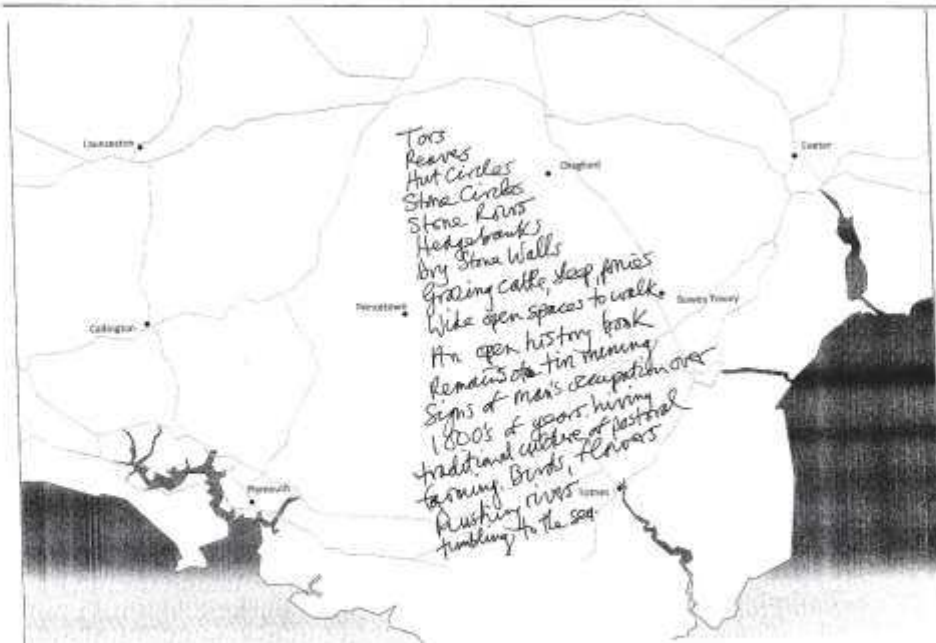 Launceston
Exeter
Chagford
Princetown
Bovey Tracey
Callington
Plymouth
Totnes
Tors
Reaves
Hut Circles
Stone Circles
Stone Rows
Hedgebanks
Dry Stone Walls
Grazing cattle, sheep, ponies
Wide open spaces to walk.
An open history book
Remains of tin mining
Signs of man's occupation over
1800's of years living
traditional culture of pastoral
farming. Birds, flowers
Rushing rivers
tumbling to the sea.